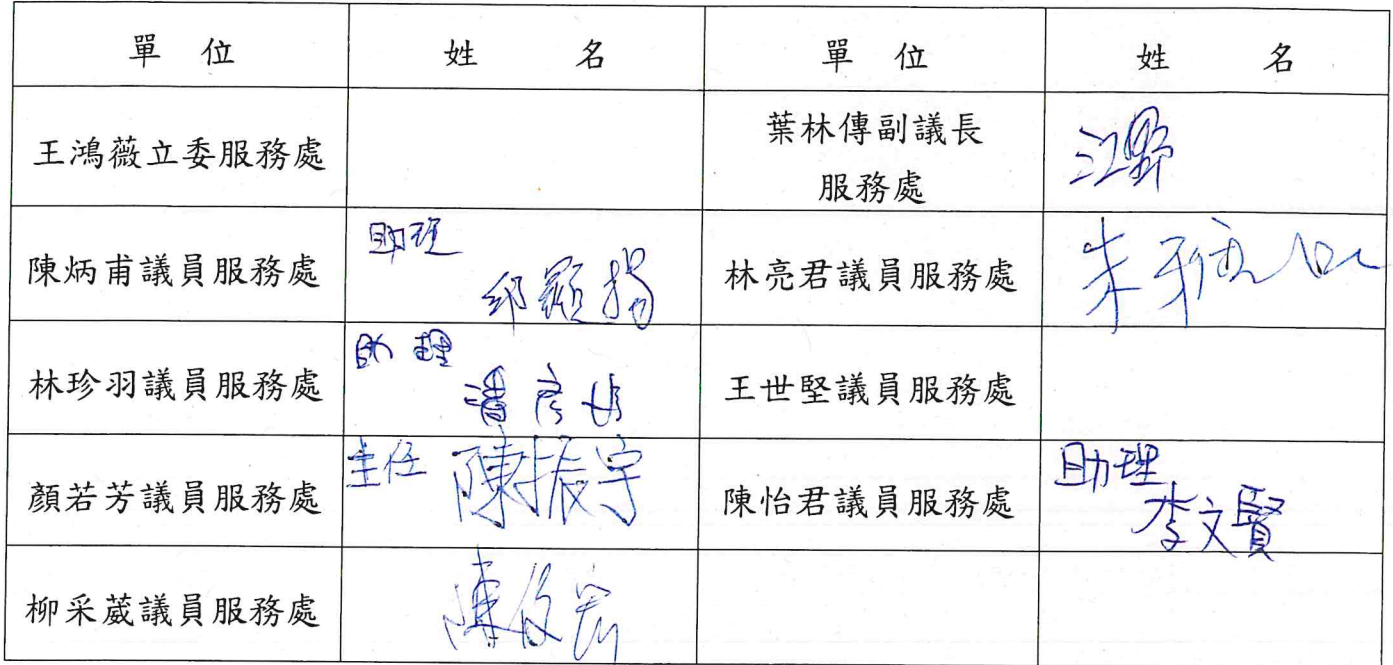 單 位 姓 名 單 位 姓 名
王鴻薇立委服務處
葉林傳副議長
服務處
江野
陳炳甫議員服務處
助理
邱顯揚
林亮君議員服務處
朱
林珍羽議員服務處
助理
潘彥
王世堅議員服務處
顏若芳議員服務處
主任 陳振宇
陳怡君議員服務處
助理
李文賢
柳采葳議員服務處
陳俊宏